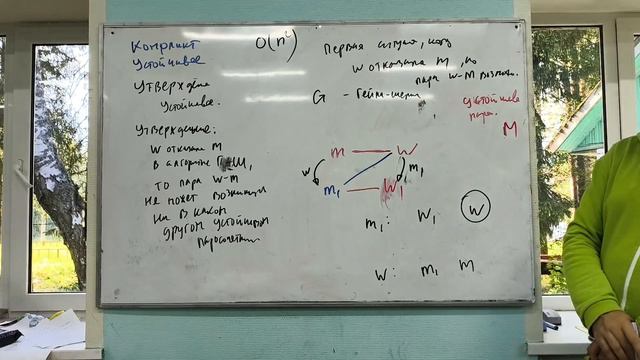 Конфликт
Устойчивое
O(n²)
Утвержд
устойчивое.
Утверждение:
W отказала M
в алгоритме Г-Ш,
то пара w-m
не может возникнуть
ни в каком
другом устойчивом
паросочетании
Первая ситуация, когда
W отказала m, но
пара w-m возникл.
G - Гейл-Шепли
устойчивая
пара.
M
m W
w m₁
m₁ W₁
m₁: W₁ W
W: m₁ M